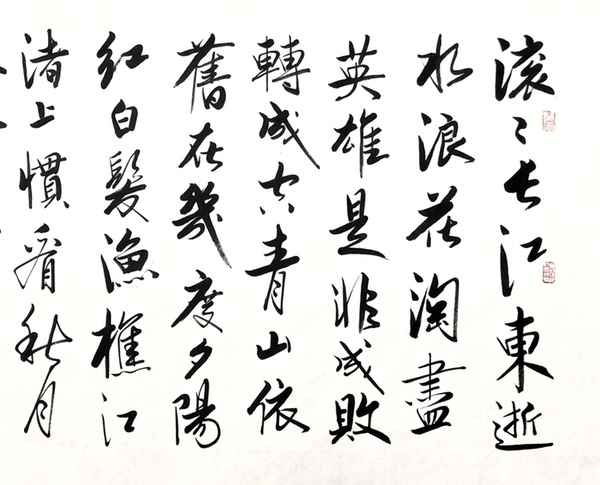 滚〻长江東逝
水浪花淘盡
英雄是非成敗
轉成空青山依
舊在幾度夕陽
红白髮漁樵江
渚上慣看秋月